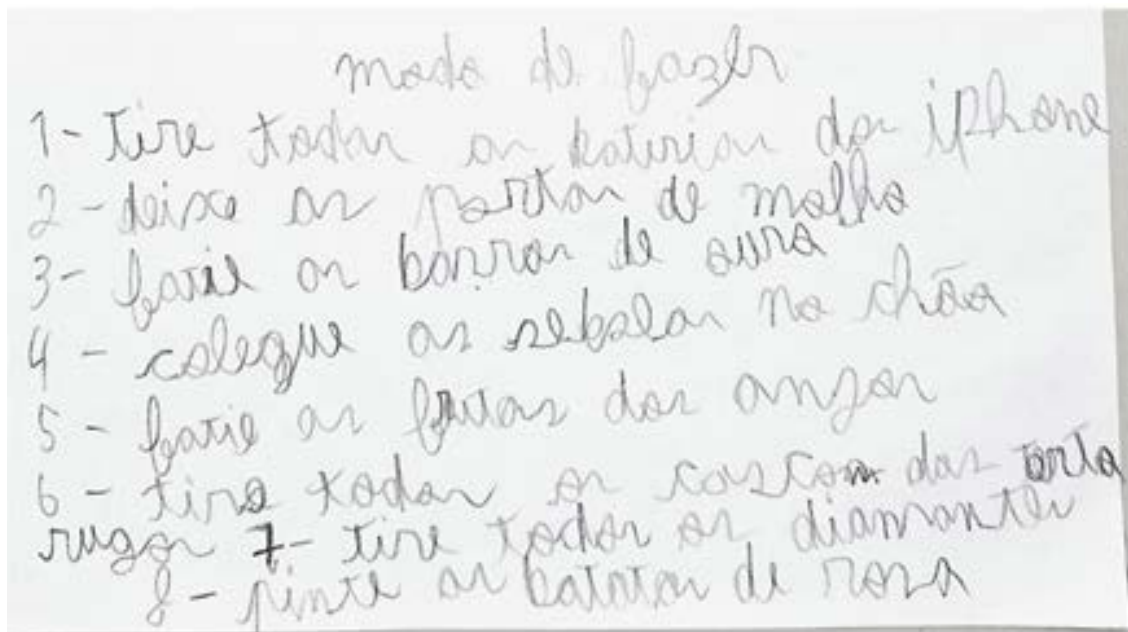 modo de fazer
1- tire todas as baterias do iphone
2- deixe as portas de molho
3- fatie as barras de oura
4- colegue as sebolas no chão
5- fatie as frutas dos anjos
6- tire todos os cascos das tarta
rugas 7- tire todos os diamantes
8- pinte as batatas de rosa